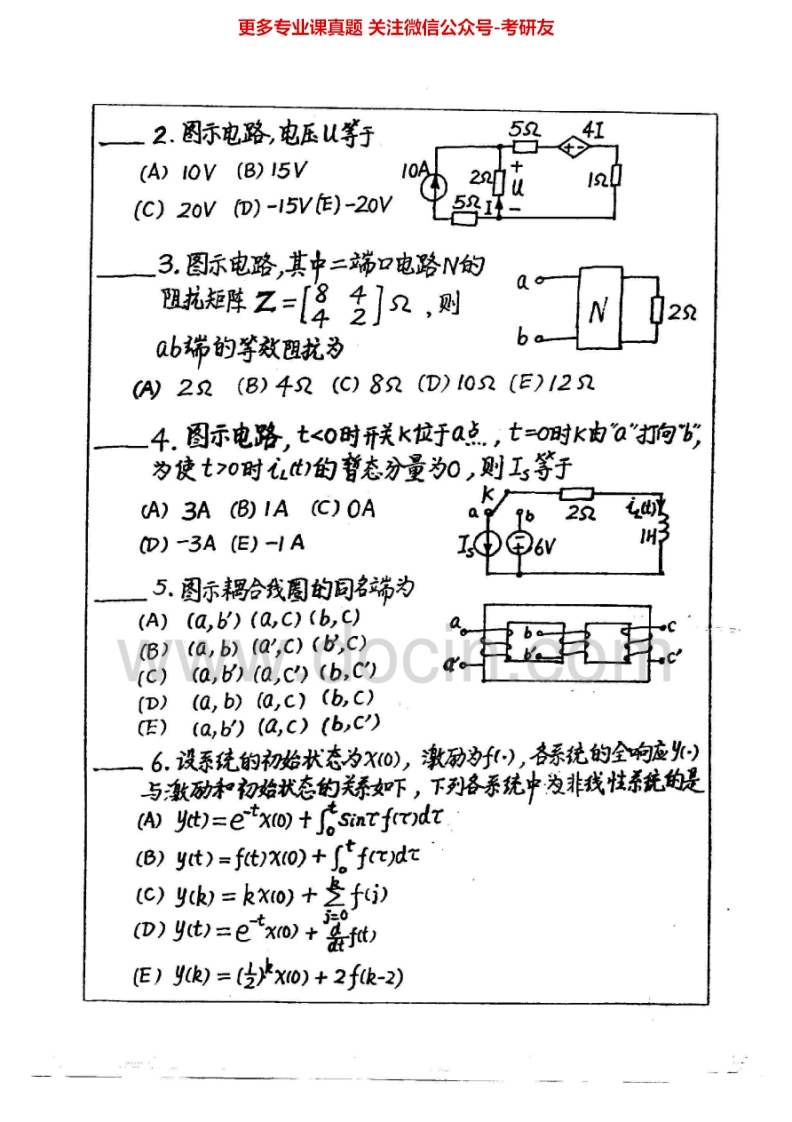 更多专业课真题 关注微信公众号-考研友
____ 2. 图示电路,电压U等于
(A) 10V (B) 15V
(C) 20V (D) -15V (E) -20V
5Ω 4I
10A 2Ω + U - 1Ω
5Ω I
____ 3. 图示电路,其中二端口电路N的
阻抗矩阵 Z=[8 4
4 2]Ω ,则
ab端的等效阻抗为
a N 2Ω
b
(A) 2Ω (B) 4Ω (C) 8Ω (D) 10Ω (E) 12Ω
____ 4. 图示电路, t<0时开关K位于a点, t=0时K由"a"打向"b",
为使t>0时iL(t)的暂态分量为0,则Is等于
(A) 3A (B) 1A (C) 0A
(D) -3A (E) -1A
K a b 2Ω iL(t)
Is 6V 1H
____ 5. 图示耦合线圈的同名端为
(A) (a,b′) (a,c) (b,c)
(B) (a,b) (a′,c) (b′,c)
(C) (a,b′) (a,c′) (b,c′)
(D) (a,b) (a,c) (b,c)
(E) (a,b′) (a,c) (b,c′)
a b c
a′ b′ c′
www.docin.com
____ 6. 设系统的初始状态为x(0), 激励为f(·), 各系统的全响应y(·)
与激励和初始状态的关系如下,下列各系统中为非线性系统的是
(A) y(t)=e^-t x(0)+∫₀^t sinτ f(τ)dτ
(B) y(t)=f(t)x(0)+∫₀^t f(τ)dτ
(C) y(k)=kx(0)+∑_{j=0}^{k} f(j)
(D) y(t)=e^-t x(0)+d/dt f(t)
(E) y(k)=(1/2)^k x(0)+2f(k-2)